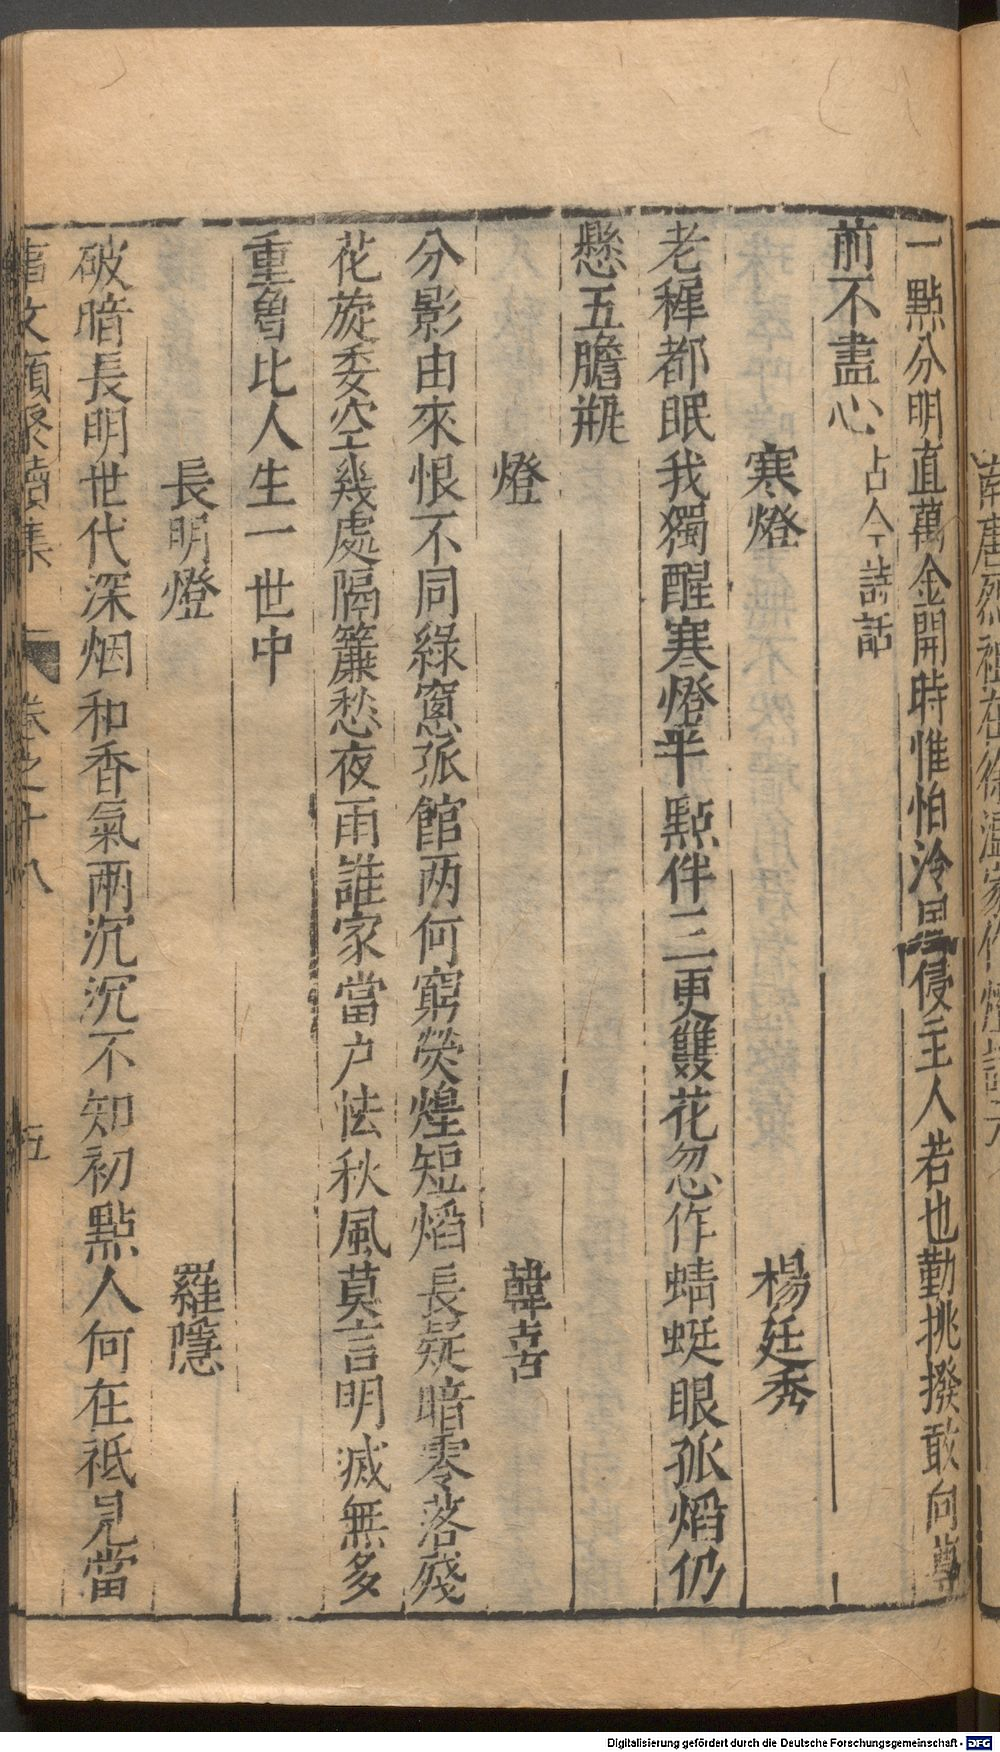 一點分明直萬金開時惟怕冷風侵主人若也勤挑撥敢向尊
前不盡心古今詩話
寒燈 楊廷秀
老穉都眠我獨醒寒燈半點伴三更雙花忽作蜻蜓眼孤熖仍
懸玉膽瓶
燈 韓
分影由來恨不同綠窻孤館两何窮熒煌短熖長疑暗零落殘
花旋委空幾處隔簾愁夜雨誰家當户怯秋風莫言明滅無多
重魯比人生一世中
長明燈 羅隱
破暗長明世代深烟和香氣兩沉沉不知初點人何在祗見當
事文類聚續集 卷之十八 五
Digitalisierung gefördert durch die Deutsche Forschungsgemeinschaft - DFG